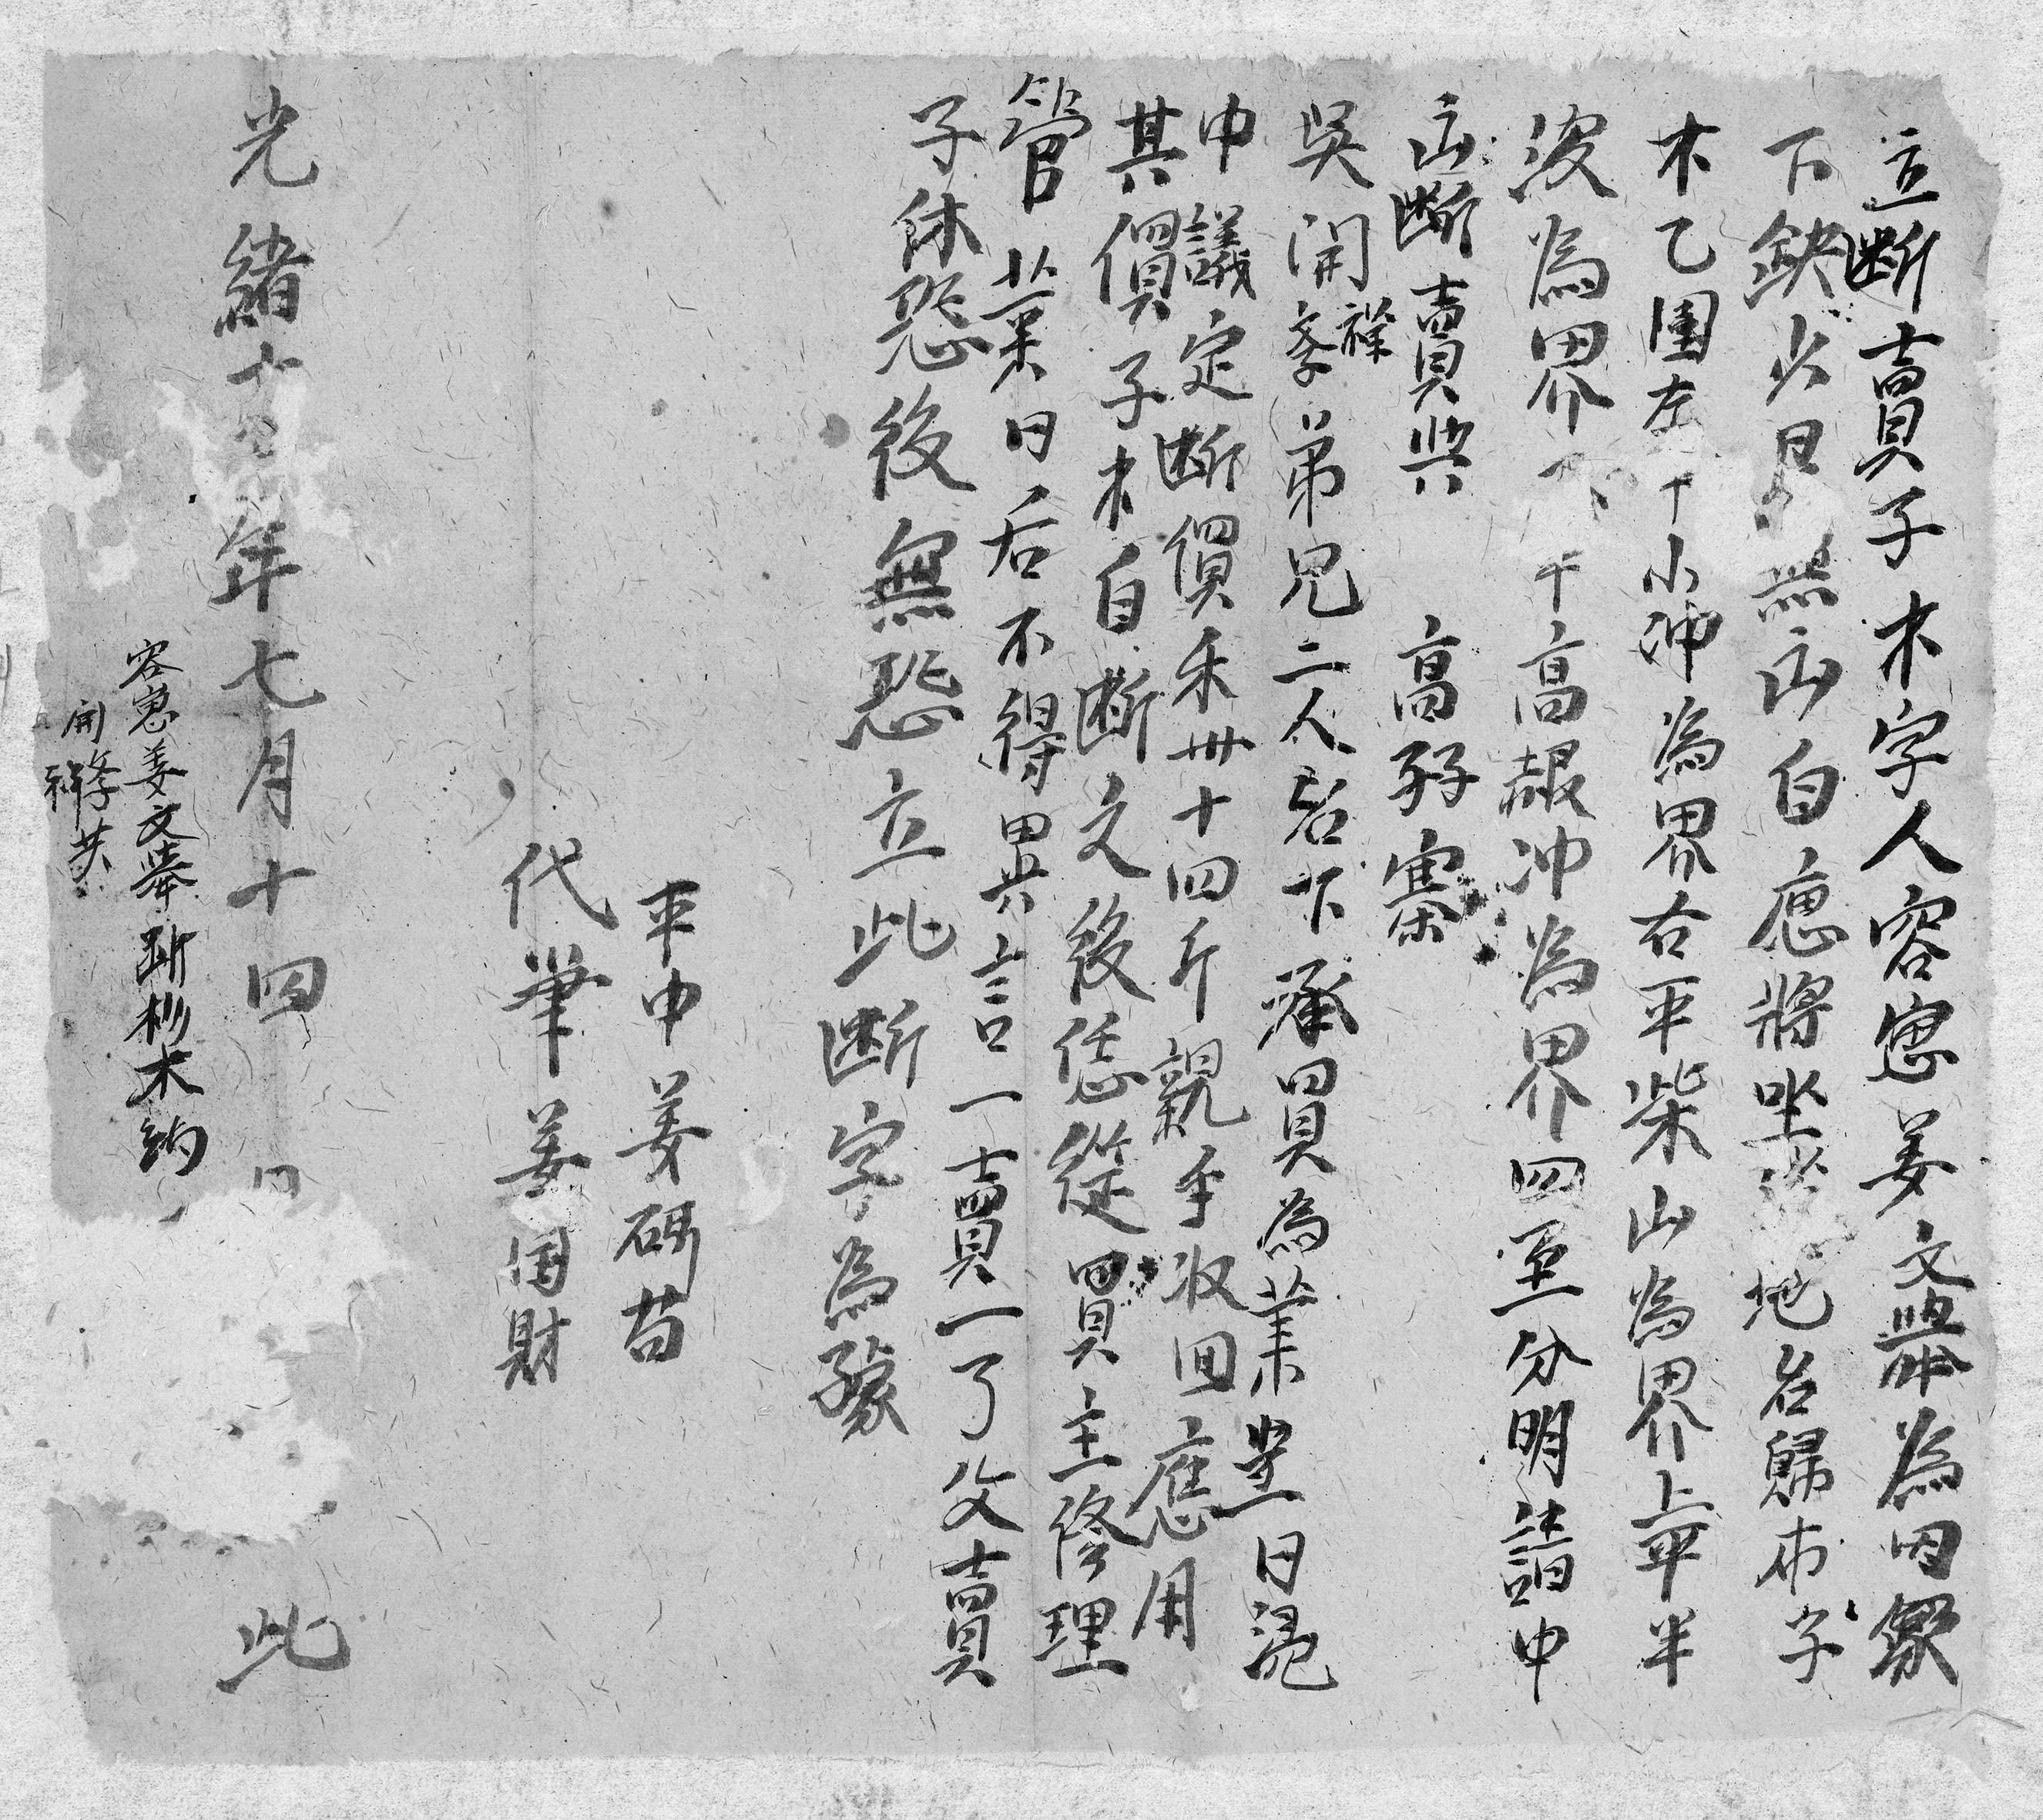 立斷賣子木字人容崽姜文舉為因家
下缺少日無山自應將坐地名歸布子
木乙團左小沖為界右平柴山為界上平半
沒為界下千高赧沖為界四至分明請中
山斷賣與 高孖寨
吳開祥孝弟兄二人名下承買為業當日憑
中議定斷價禾卅十四斤親手收回應用
其價子木自斷之後恁從買主修理
管業日后不得異言一賣一了父賣
子休恐後無恐立此斷字為據
平中姜硪苟
代筆姜国財
光緒十年七月十四日 此
容崽姜文舉斷杉木約
開孝祥共